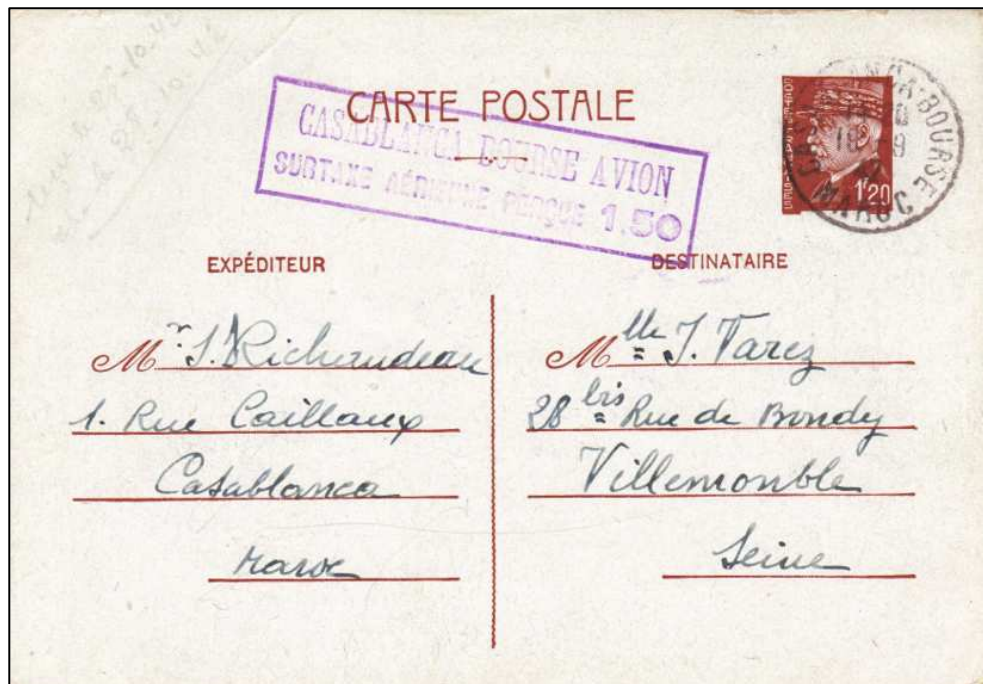 CARTE POSTALE
CASABLANCA BOURSE AVION
SURTAXE AÉRIENNE PERÇUE 1.50
CASABLANCA-BOURSE
MAROC
1f20
EXPÉDITEUR
Mr J. Richaudeau
1. Rue Caillaux
Casablanca
Maroc
DESTINATAIRE
Mlle J. Tarez
28 bis Rue de Bondy
Villemomble
Seine